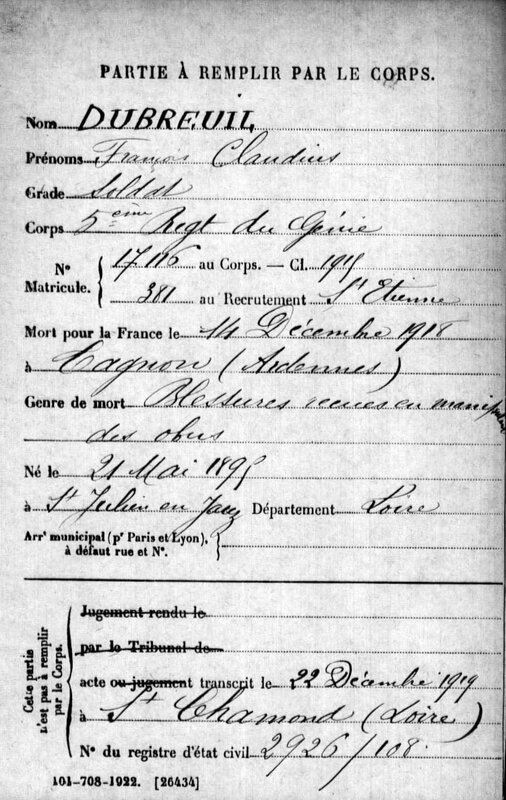 PARTIE À REMPLIR PAR LE CORPS.
Nom DUBREUIL
Prénoms François Claudius
Grade Soldat
Corps 5ème Regt du Génie
N° Matricule. { 17116 au Corps. — Cl. 1915
381 au Recrutement St Etienne
Mort pour la France le 14 Décembre 1918
à Cagnon (Ardennes)
Genre de mort Blessures reçues en manipulant
des obus
Né le 21 Mai 1895
à St Julien en Jarez Département Loire
Arrt municipal (pr Paris et Lyon), à défaut rue et N°.
Cette partie n'est pas à remplir par le Corps.
Jugement rendu le
par le Tribunal de
acte ou jugement transcrit le 22 Décembre 1919
à St Chamond (Loire)
N° du registre d'état civil 2926/108.
101-708-1922. [26434]